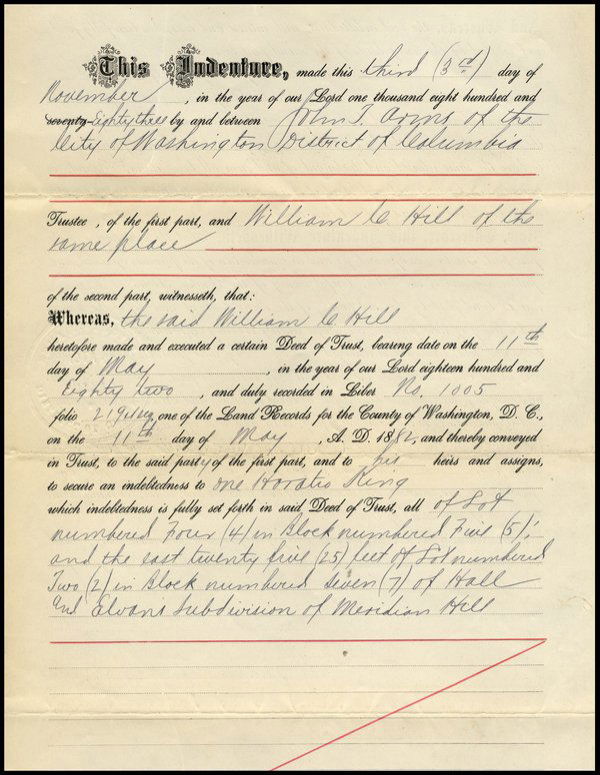 This Indenture, made this third (3rd) day of
November, in the year of our Lord one thousand eight hundred and
seventy-Eighty three by and between John T. Arms of the
City of Washington District of Columbia
Trustee, of the first part, and William C. Hill of the
same place
of the second part, witnesseth, that:
Whereas, the said William C. Hill
heretofore made and executed a certain Deed of Trust, bearing date on the 11th
day of May, in the year of our Lord eighteen hundred and
Eighty two, and duly recorded in Liber No. 1005
folio 219 et seq one of the Land Records for the County of Washington, D. C.,
on the 11th day of May, A. D. 1882, and thereby conveyed
in Trust, to the said party of the first part, and to his heirs and assigns,
to secure an indebtedness to one Horatio King
which indebtedness is fully set forth in said Deed of Trust, all of Lot
numbered Four (4) in Block numbered Five (5);
and the east twenty five (25) feet of Lot numbered
Two (2) in Block numbered seven (7) of Hall
and Elvans Subdivision of Meridian Hill